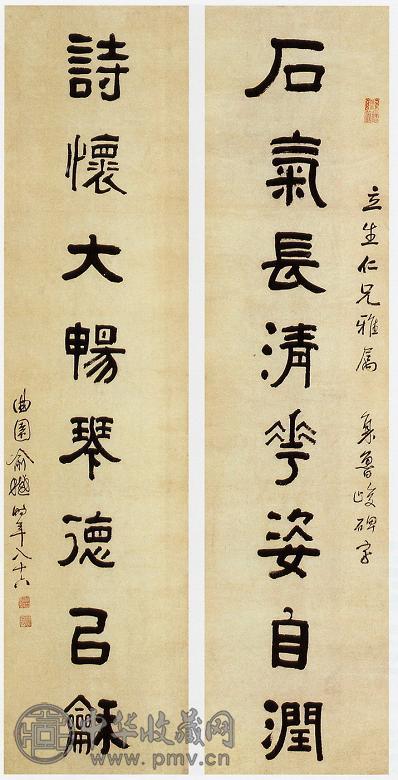 立生仁兄雅屬 集魯峻碑字
石氣長清華姿自潤
詩懷大暢琴德㠯龢
曲園俞樾時年八十六
中华收藏网
www.pmv.cn